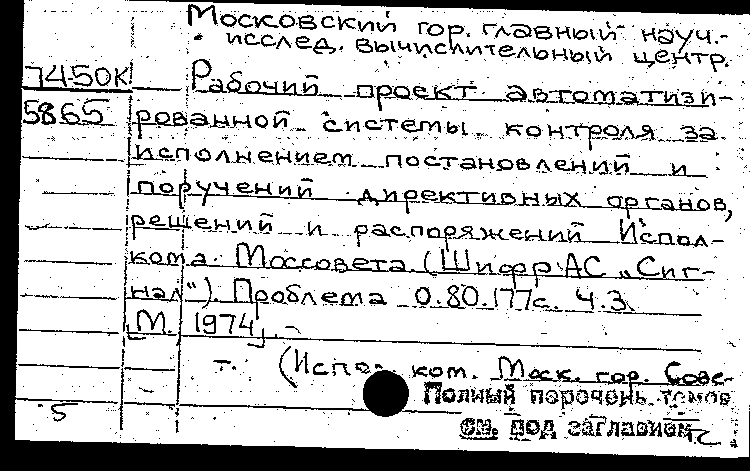 Московский гор. главный науч.-
исслед. вычислительный центр.
7450К Рабочий проект автоматизи-
5865 рованной системы контроля за
исполнением постановлений и
поручений директивных органов,
решений и распоряжений Испол-
кома Моссовета (Шифр АС „Сиг-
нал"). Проблема 0.80.177с. Ч.3
[М. 1974]. -
т. (Испол. ком. Моск. гор. Сове-
Полный перечень томов
5 см. под заглавием